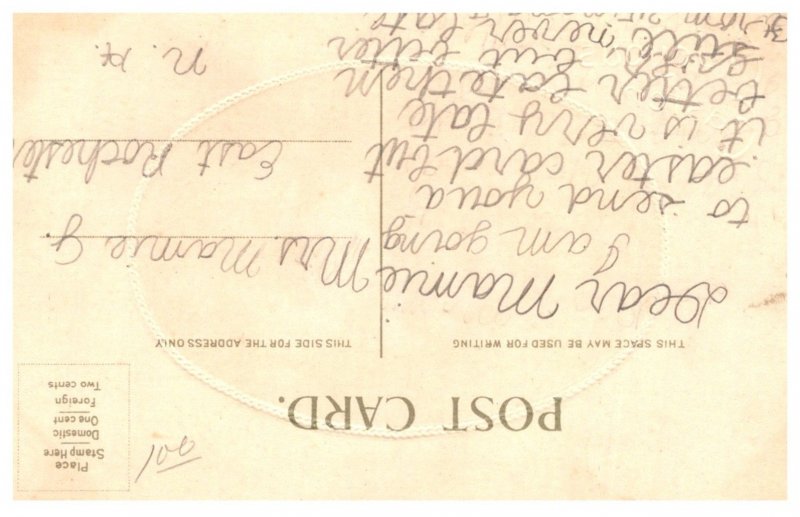 POST CARD.
Place
Stamp Here
Domestic
One cent
Foreign
Two cents
THIS SPACE MAY BE USED FOR WRITING
THIS SIDE FOR THE ADDRESS ONLY
Dear Mamie
I am going
to send you a
easter card but
it is very late
better late them
later, but bitter
still never late
from
Mrs. Mamie G.
East Rocheste
N. H.